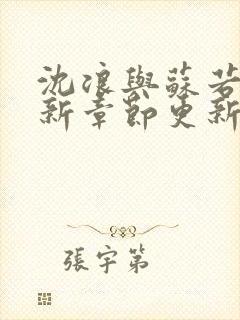 沈浪與蘇若
新章節更新
張宇第